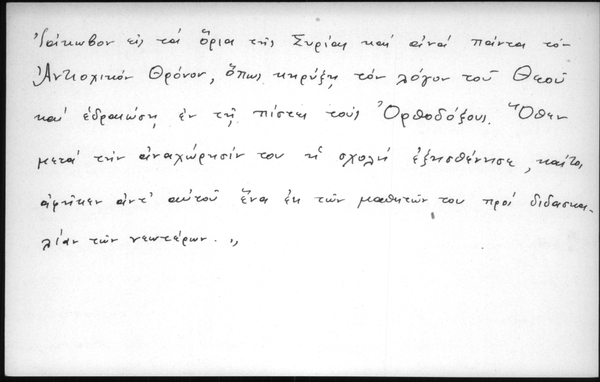 Ἰάκωβον εἰς τά ὅρια τῆς Συρίας καί ἀνά πάντα τόν
Ἀντιοχικόν Θρόνον, ὅπως κηρύξῃ τόν λόγον τοῦ Θεοῦ
καί ἑδραιώσῃ ἐν τῇ πίστει τούς Ὀρθοδόξους. Ὅθεν
μετά τήν ἀναχώρησίν του ἡ σχολή ἐξησθένησε, καίτοι
ἀφῆκεν ἀντ' αὐτοῦ ἕνα ἐκ τῶν μαθητῶν του πρός διδασκα-
λίαν τῶν νεωτέρων."